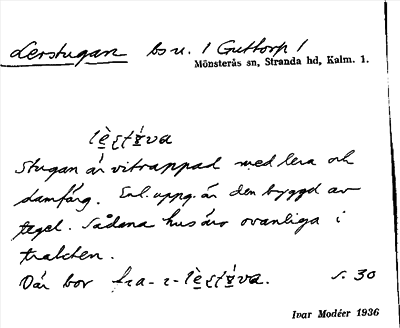 Lerstugan bs u. / Guttorp /
Mönsterås sn, Stranda hd, Kalm. l.
Stugan är vitrappad med lera och
damfärg. Enl. uppg. är den byggd av
tegel. Sådana hus äro ovanliga i
trakten.
Där bor fra-
s. 30
Ivar Modéer 1936